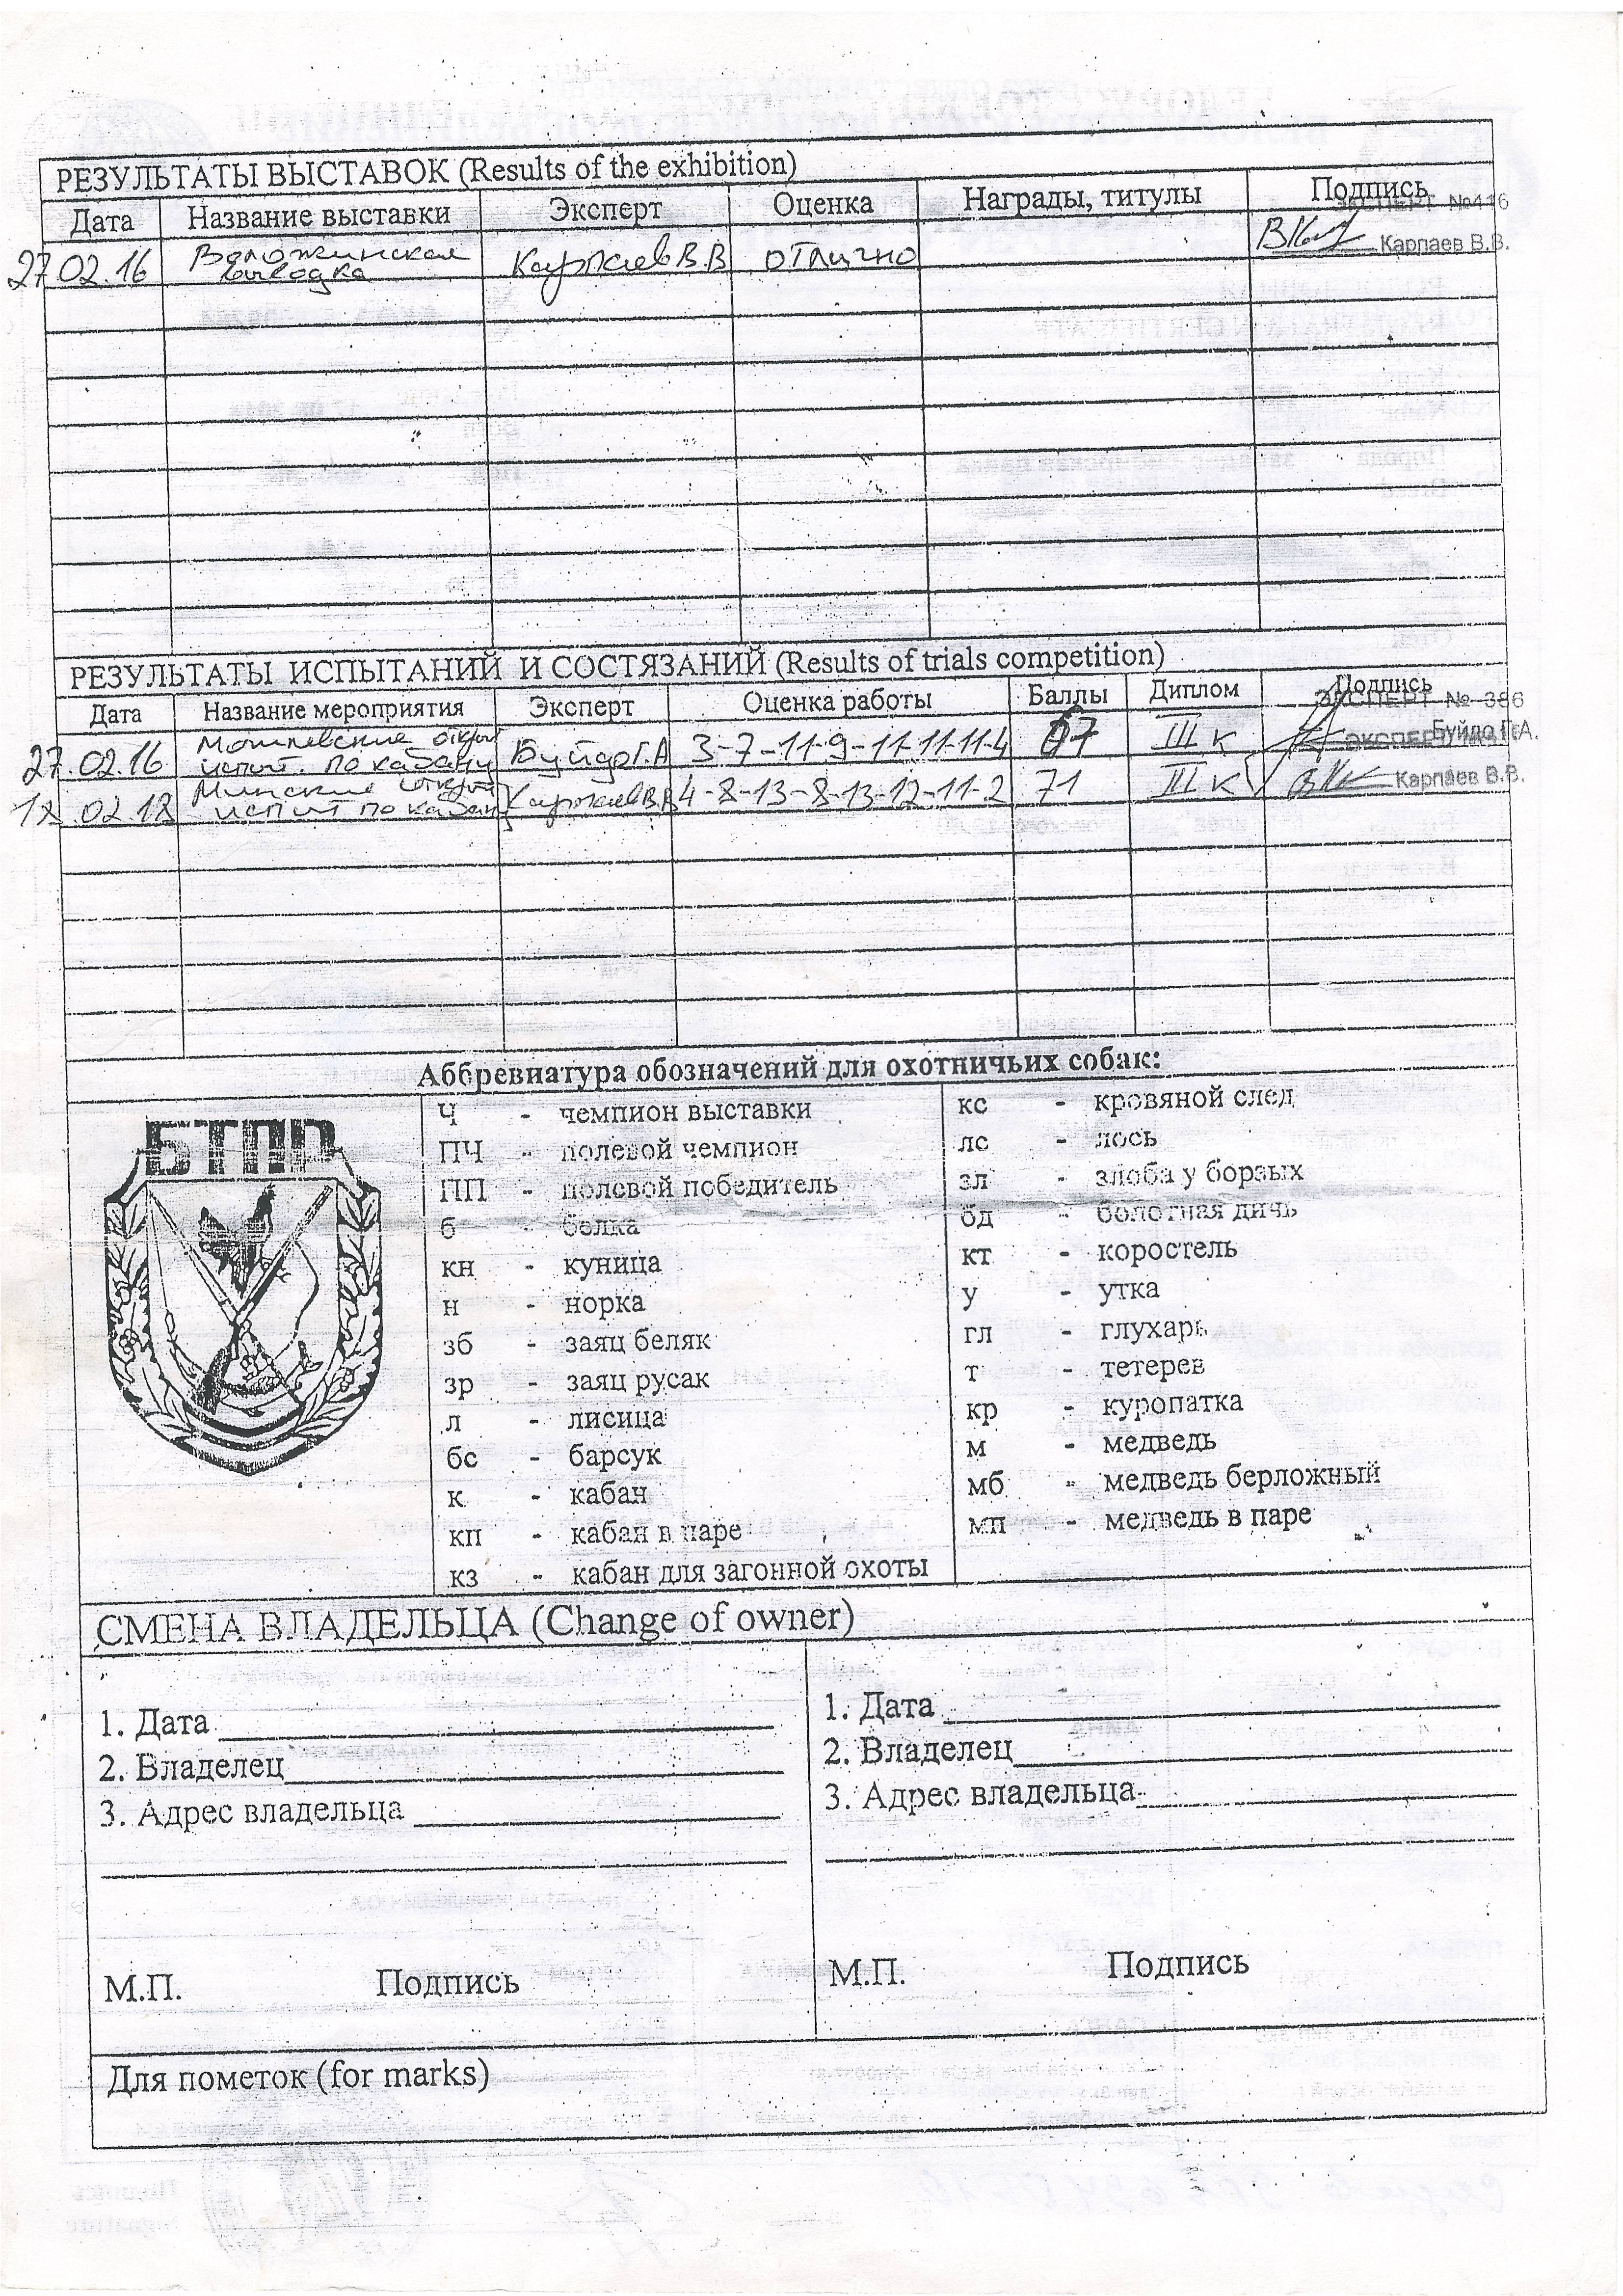 РЕЗУЛЬТАТЫ ВЫСТАВОК (Results of the exhibition)
Дата Название выставки Эксперт Оценка Награды, титулы Подпись
ЭКСПЕРТ №416
27.02.16 Воложинская выводка Карпаев В.В отлично Карпаев В.В.
РЕЗУЛЬТАТЫ ИСПЫТАНИЙ И СОСТЯЗАНИЙ (Results of trials competition)
Дата Название мероприятия Эксперт Оценка работы Баллы Диплом Подпись
ЭКСПЕРТ № 386
27.02.16 испыт. по кабану Буйдо Г.А 3-7-11-9-11-11-11-4 67 III к Буйдо Г.А.
ЭКСПЕРТ
12.02.18 Минские откр испыт по кабану Карпаев В.В 4-8-13-8-13-12-11-2 71 II к Карпаев В.В.
Аббревиатура обозначений для охотничьих собак:
БТПР
Ч - чемпион выставки кс - кровяной след
ПЧ - полевой чемпион лс - лось
ПП - полевой победитель зл - злоба у борзых
б - белка бд - болотная дичь
кн - куница кт - коростель
н - норка у - утка
зб - заяц беляк гл - глухарь
зр - заяц русак т - тетерев
л - лисица кр - куропатка
бс - барсук м - медведь
к - кабан мб - медведь берложный
кп - кабан в паре мп - медведь в паре
кз - кабан для загонной охоты
СМЕНА ВЛАДЕЛЬЦА (Change of owner)
1. Дата 1. Дата
2. Владелец 2. Владелец
3. Адрес владельца 3. Адрес владельца
М.П. Подпись М.П. Подпись
Для пометок (for marks)